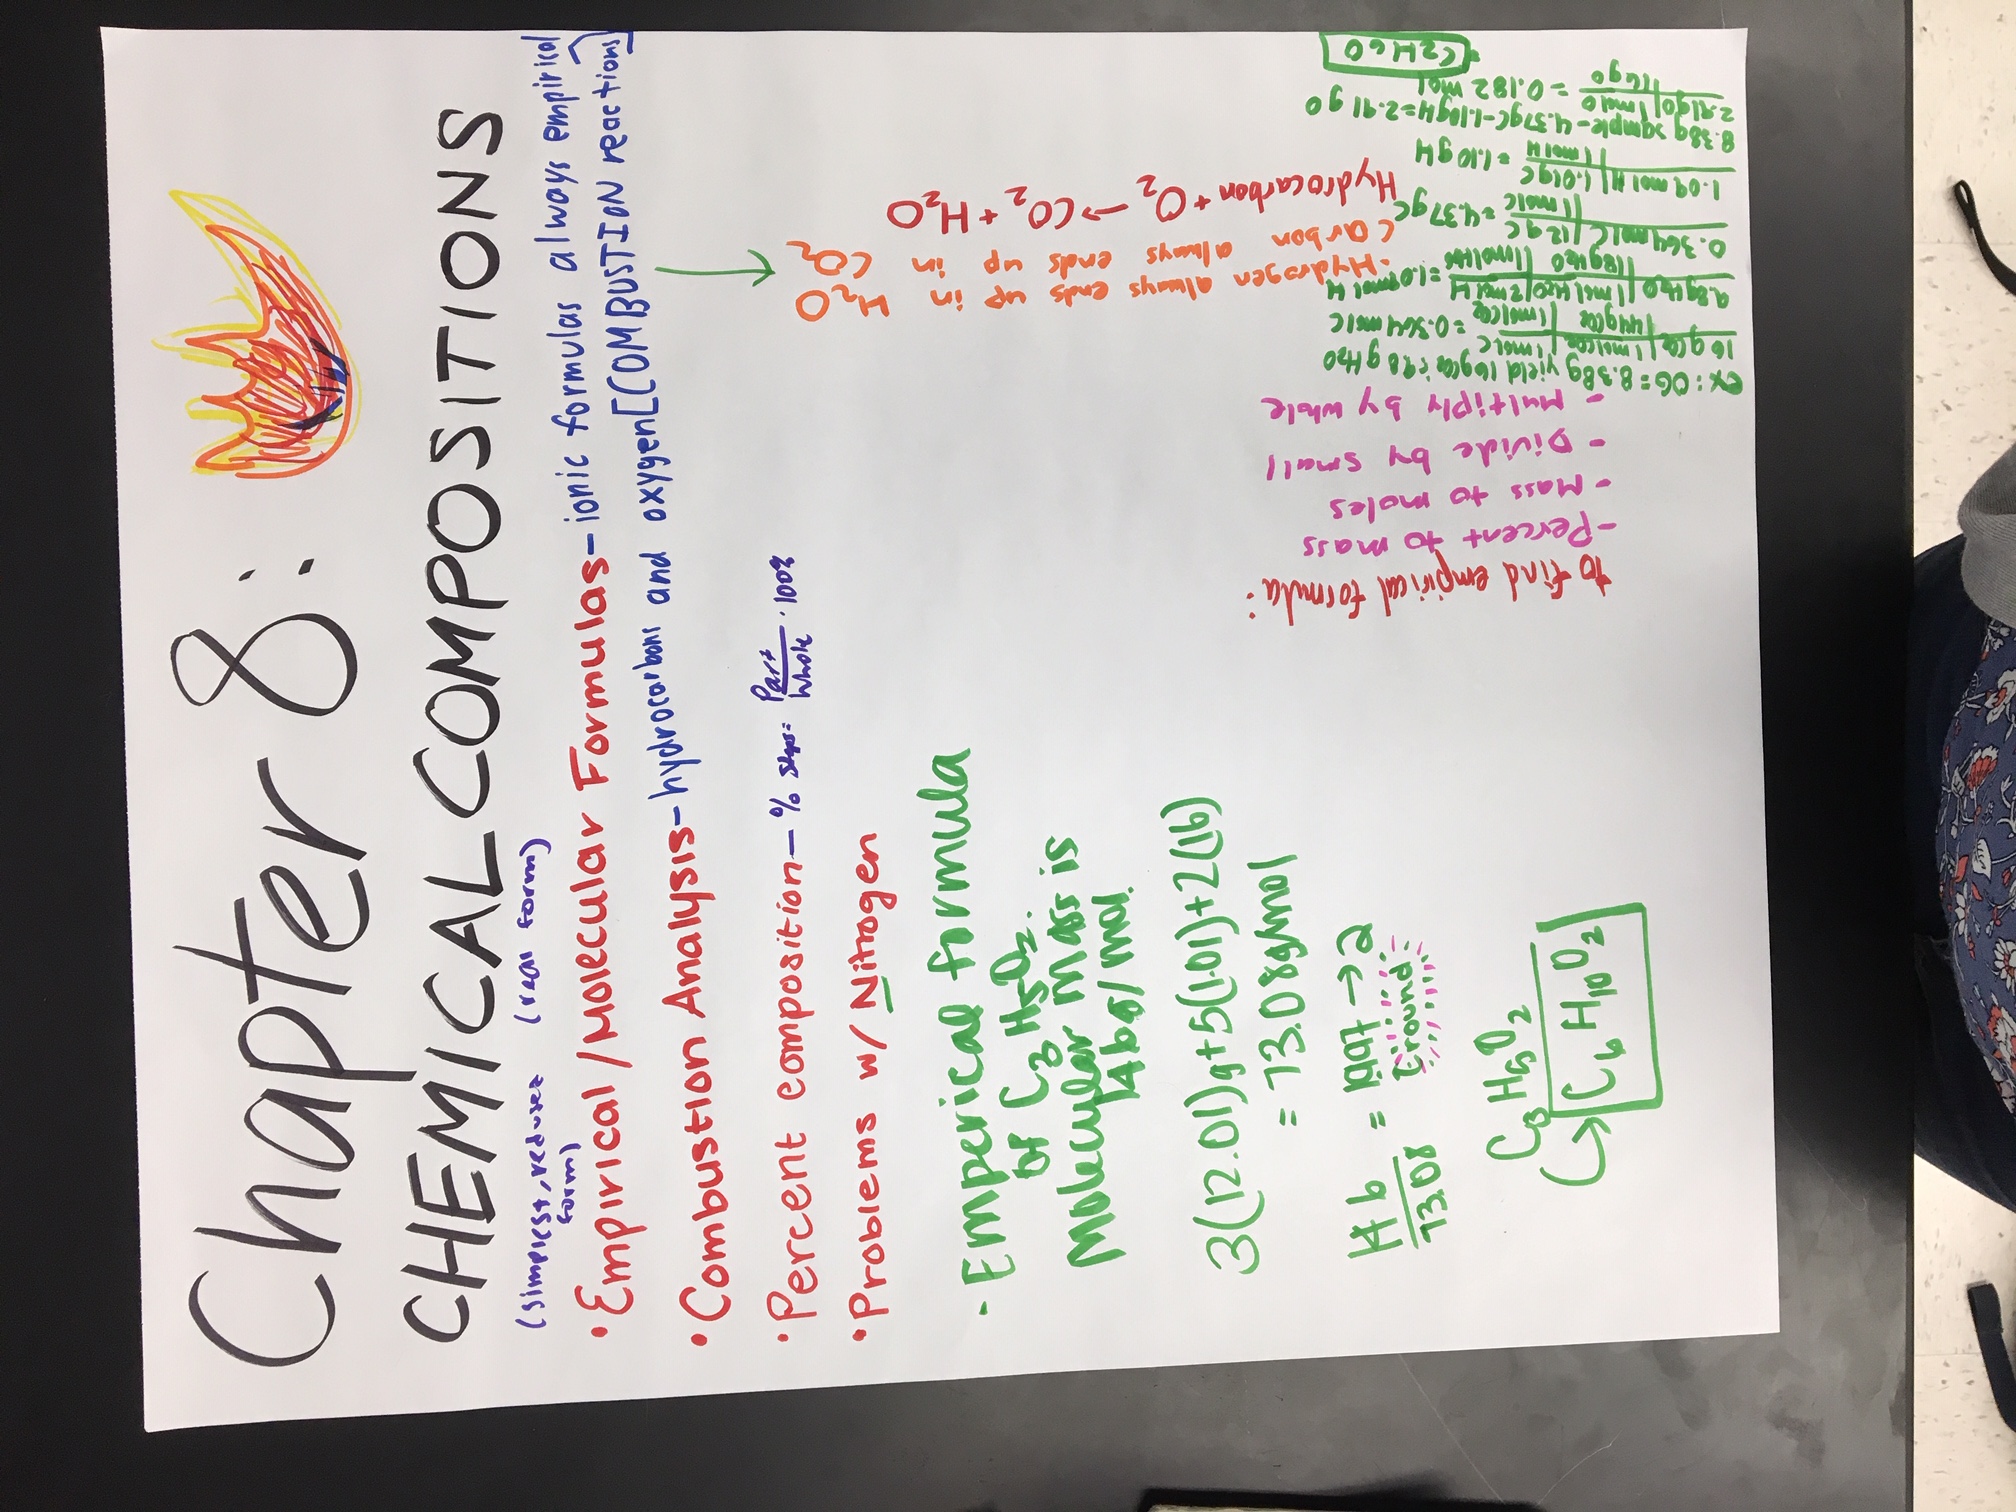 Chapter 8:
CHEMICAL COMPOSITIONS
(simplest, reduced form) (real form)
• Empirical/Molecular Formulas - ionic formulas always empirical
• Combustion Analysis - hydrocarbons and oxygen [COMBUSTION reactions]
• Percent composition - % = Part/Whole · 100%
• Problems w/ Nitrogen
- Emperical formula
of C3H5O2.
Molecular Mass is
146g/mol.
3(12.01)g+5(1.01)+2(16)
= 73.08g/mol
146/73.08 = 1.997 → 2
round
C3H5O2
↳ C6H10O2
Hydrocarbon + O2 → CO2 + H2O
Carbon always ends up in CO2
· Hydrogen always ends up in H2O
to find empirical formula:
- Percent to mass
- Mass to moles
- Divide by small
- Multiply by whole
ex: OG = 8.38g yield 16gCO2 : 9.8gH2O
16gCO2 | 1molCO2 | 1molC
44gCO2 | 1molCO2 = 0.364molC
9.8gH2O | 1molH2O | 2molH
18gH2O | 1molH2O = 1.09molH
0.364molC | 12gC
1molC = 4.37gC
1.09molH | 1.01gC
1molH = 1.10gH
8.38g sample - 4.37gC - 1.10gH = 2.91gO
2.91gO | 1molO
16gO = 0.182mol
= C2H6O